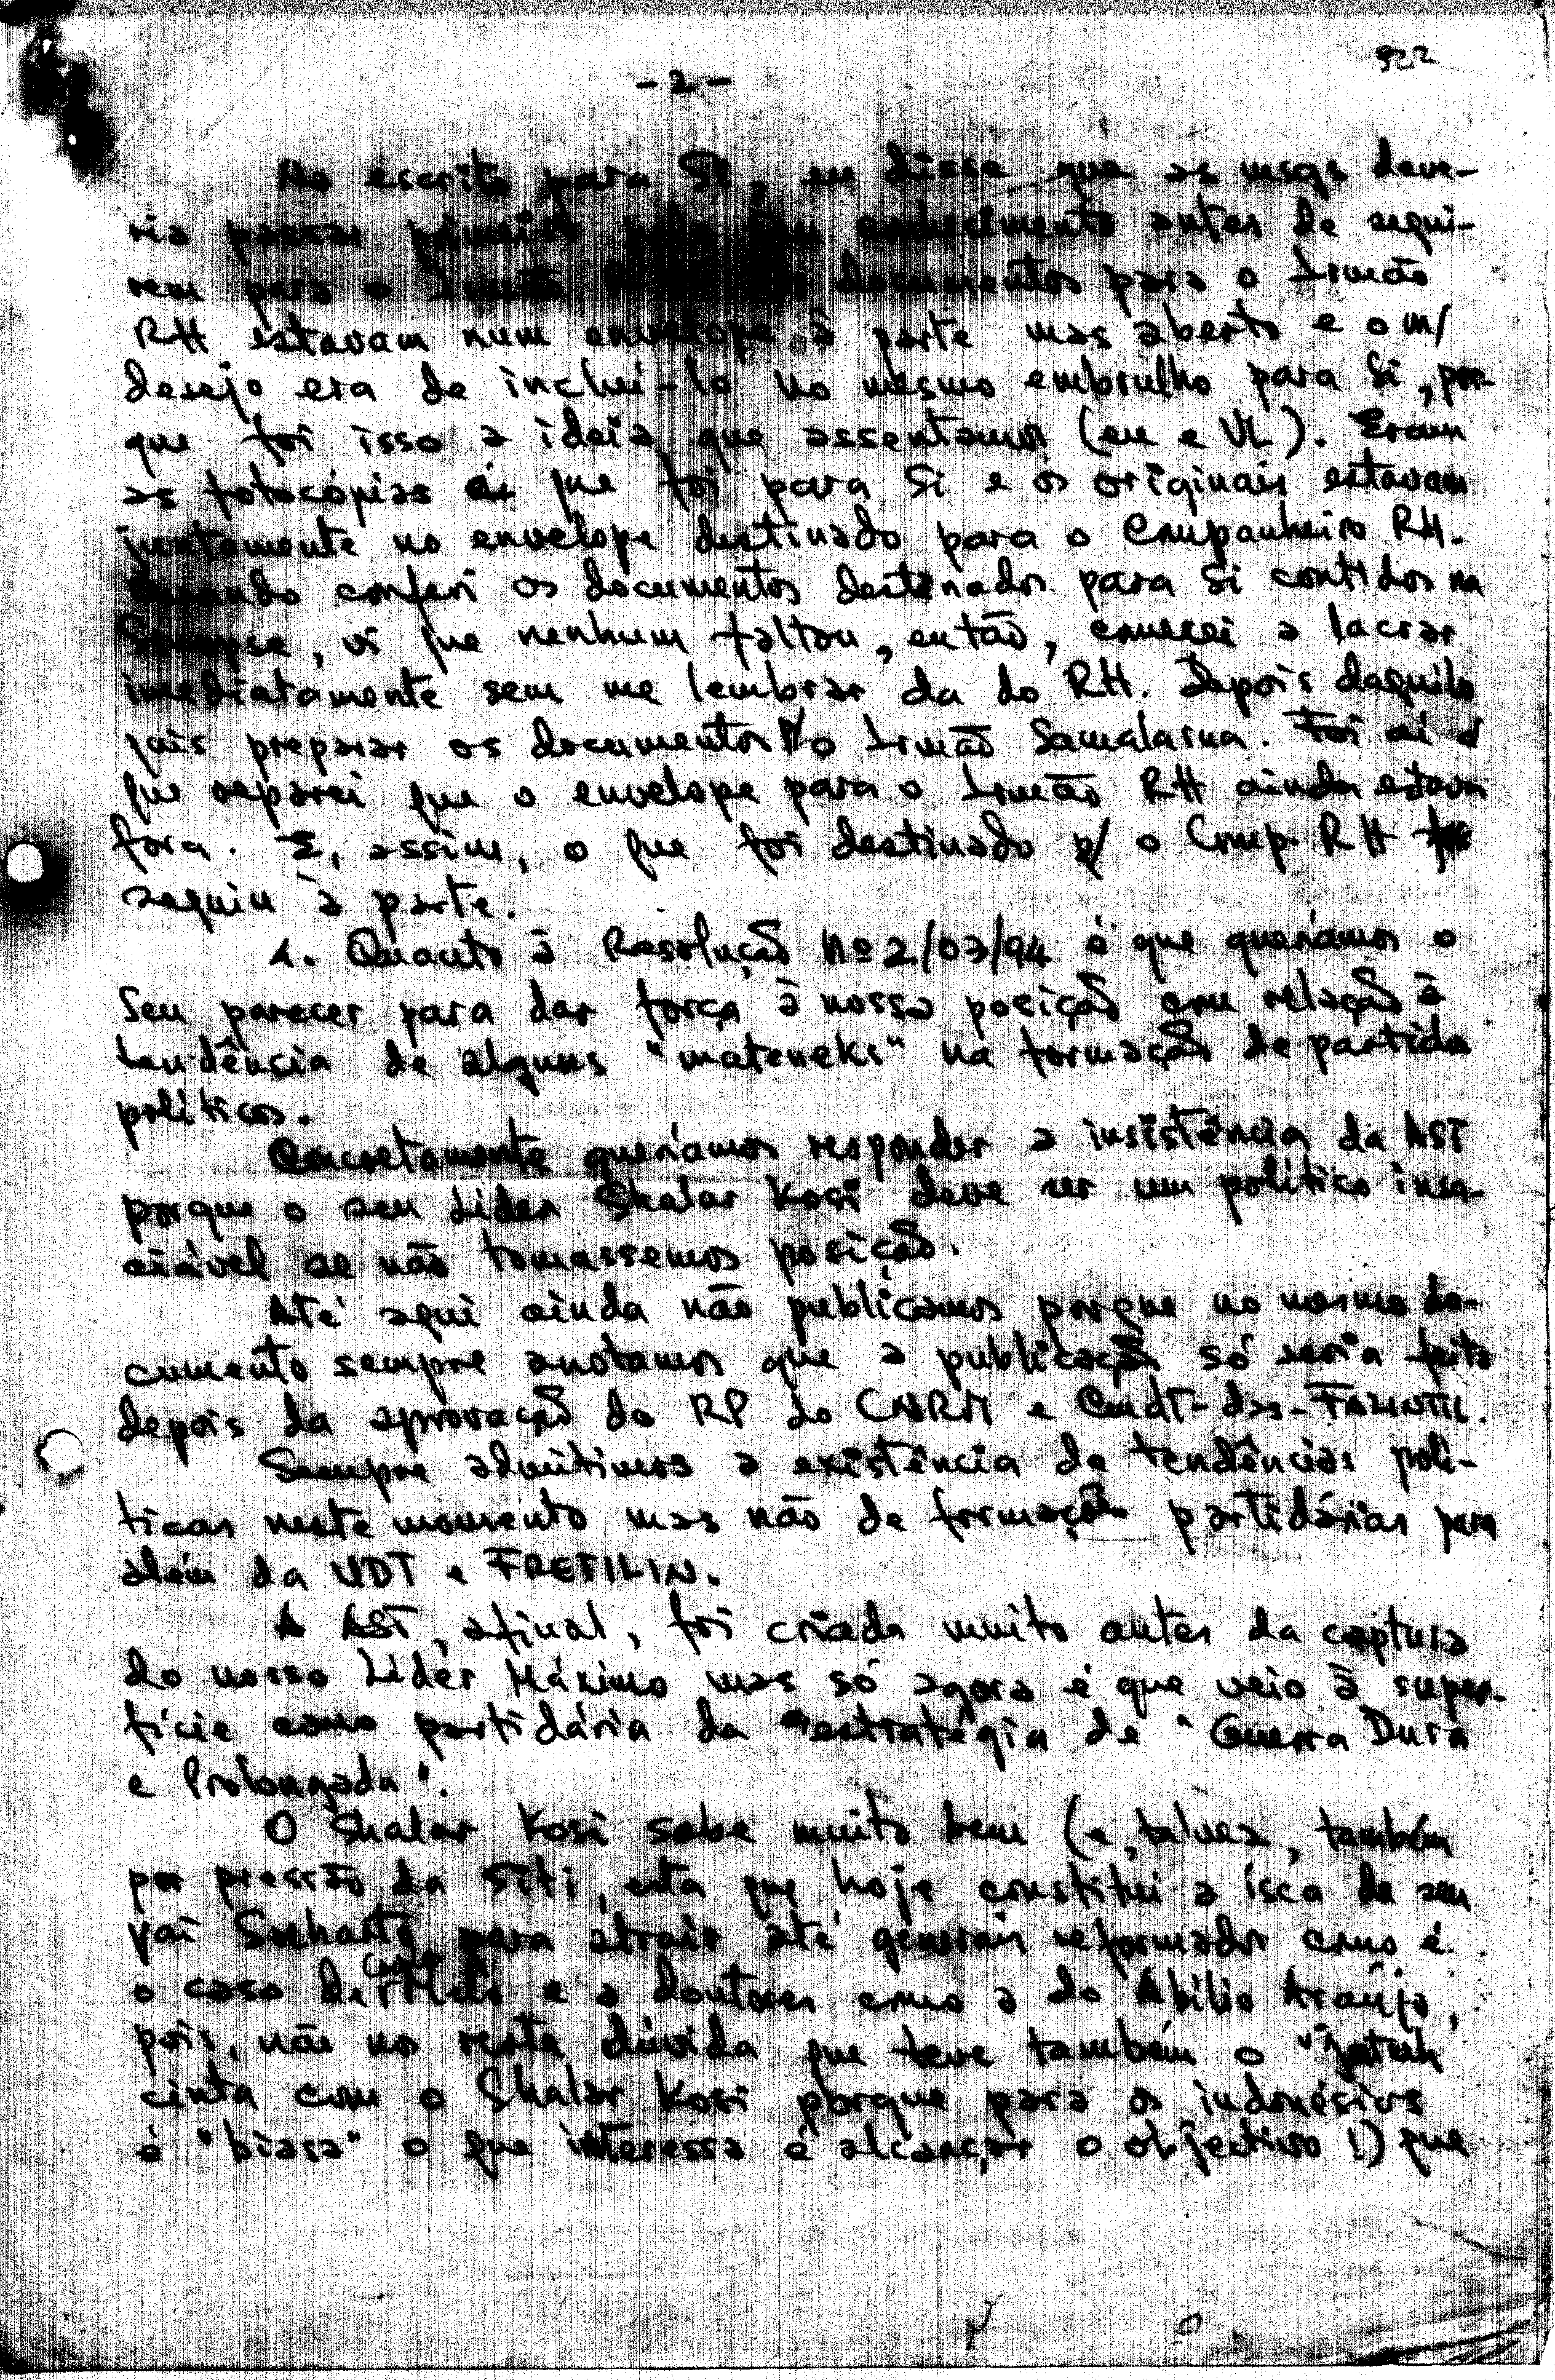 922
- 2 -
No escrito para Si, eu disse que as msgs deve-
ria passar primeiro pelo seu conhecimento antes de segui-
rem para o Irmão documentos para o Irmão
RH estavam num envelope à parte mas aberto e o m/
desejo era de incluí-lo no mesmo embrulho para Si, por-
que foi isso a ideia que assentamos (eu e VL). Eram
as fotocópias que foi para Si e os originais estavam
juntamente no envelope destinado para o Companheiro RH.
Quando conferi os documentos destinados para Si contidos na
, vi que nenhum faltou, então, comecei a lacrar
imediatamente sem me lembrar da do RH. Depois daquilo
quis preparar os documentos p/o Irmão Samalarua. Foi aí
que reparei que o envelope para o Irmão RH ainda estava
fora. E, assim, o que foi destinado p/ o Comp. RH
seguiu à parte.
1. Quanto à Resolução Nº 2/03/94 é que queríamos o
Seu parecer para dar força à nossa posição com relação à
tendência de alguns "mateneks" na formação de partidos
políticos.
Concretamente queríamos responder a insistência da AST
porque o seu Líder Shalar Kosi deve ser um político insa-
ciável se não tomassemos posição.
Até aqui ainda não publicamos porque no mesmo do-
cumento sempre anotamos que a publicação só seria feita
depois da aprovação do RP do CNRM e Cmdt-das-FALINTIL.
Sempre admitimos a existência de tendências polí-
ticas neste momento mas não de formação partidárias para
além da UDT e FRETILIN.
A AST, afinal, foi criada muito antes da captura
do nosso Líder Máximo mas só agora é que veio à super-
fície como partidária da estratégia de "Guerra Dura
e Prolongada".
O Shalar Kosi sabe muito bem (e, talvez, também
por pressão da Siti, esta que hoje constitui a isca de seu
pai Soeharto para atrair até generais reformados como é
o caso de e a doutores como a do Abílio Araújo,
pois, não nos resta dúvida que teve também o "jatuh
cinta com o Shalar Kosi porque para os indonésios
é "biasa" o que interessa é alcançar o objectivo!) que